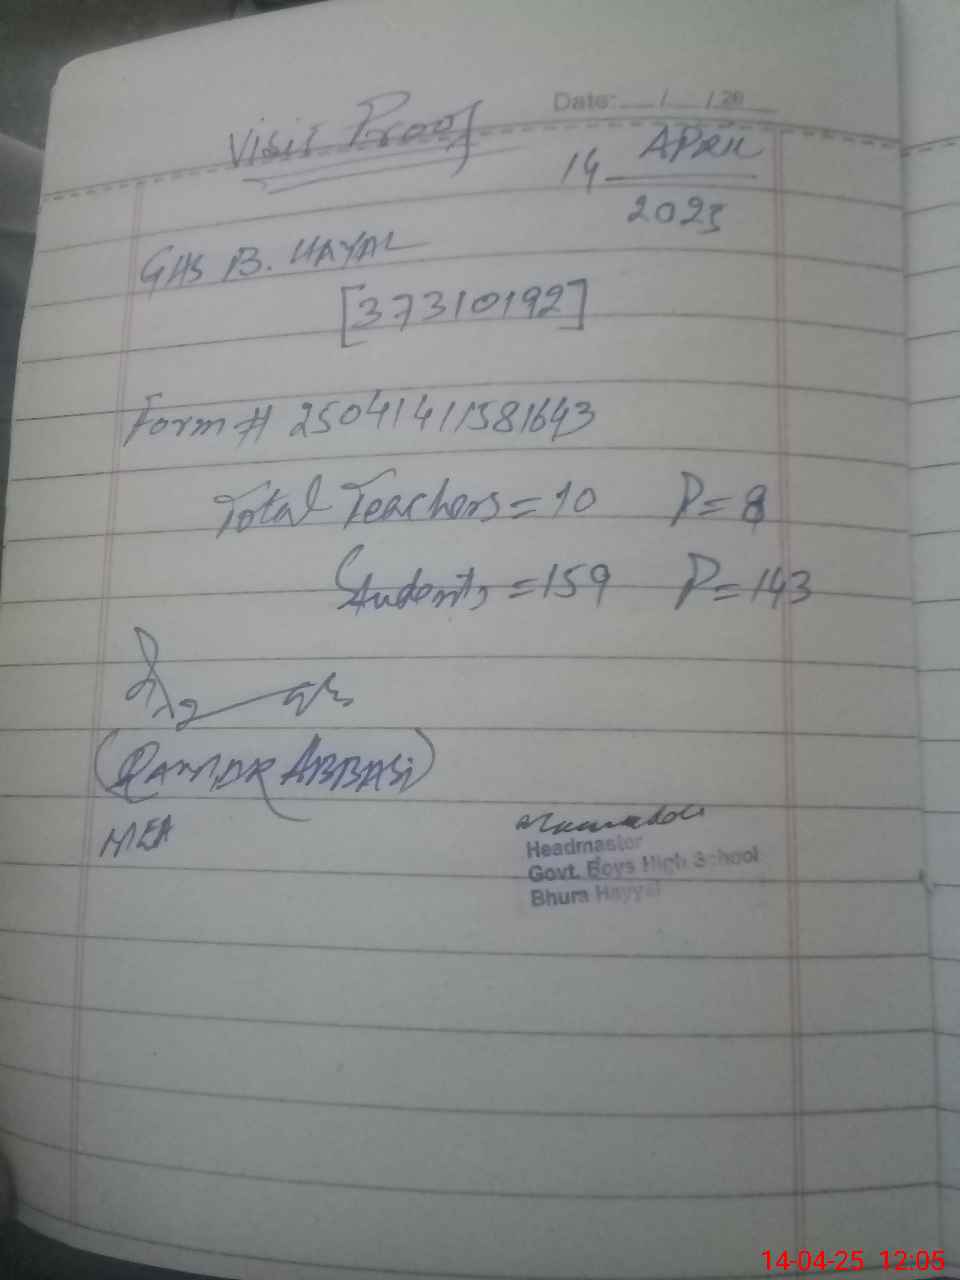 Date: / / 20
Visit Proof
14 APRIL
2025
GHS B. HAYAL
[37310192]
Form # 25041411581643
Total Teachers = 10 P = 8
Students = 159 P = 143
(QAMAR ABBAS)
MEA
Headmaster
Govt. Boys High School
Bhura Hayyal
14-04-25 12:05